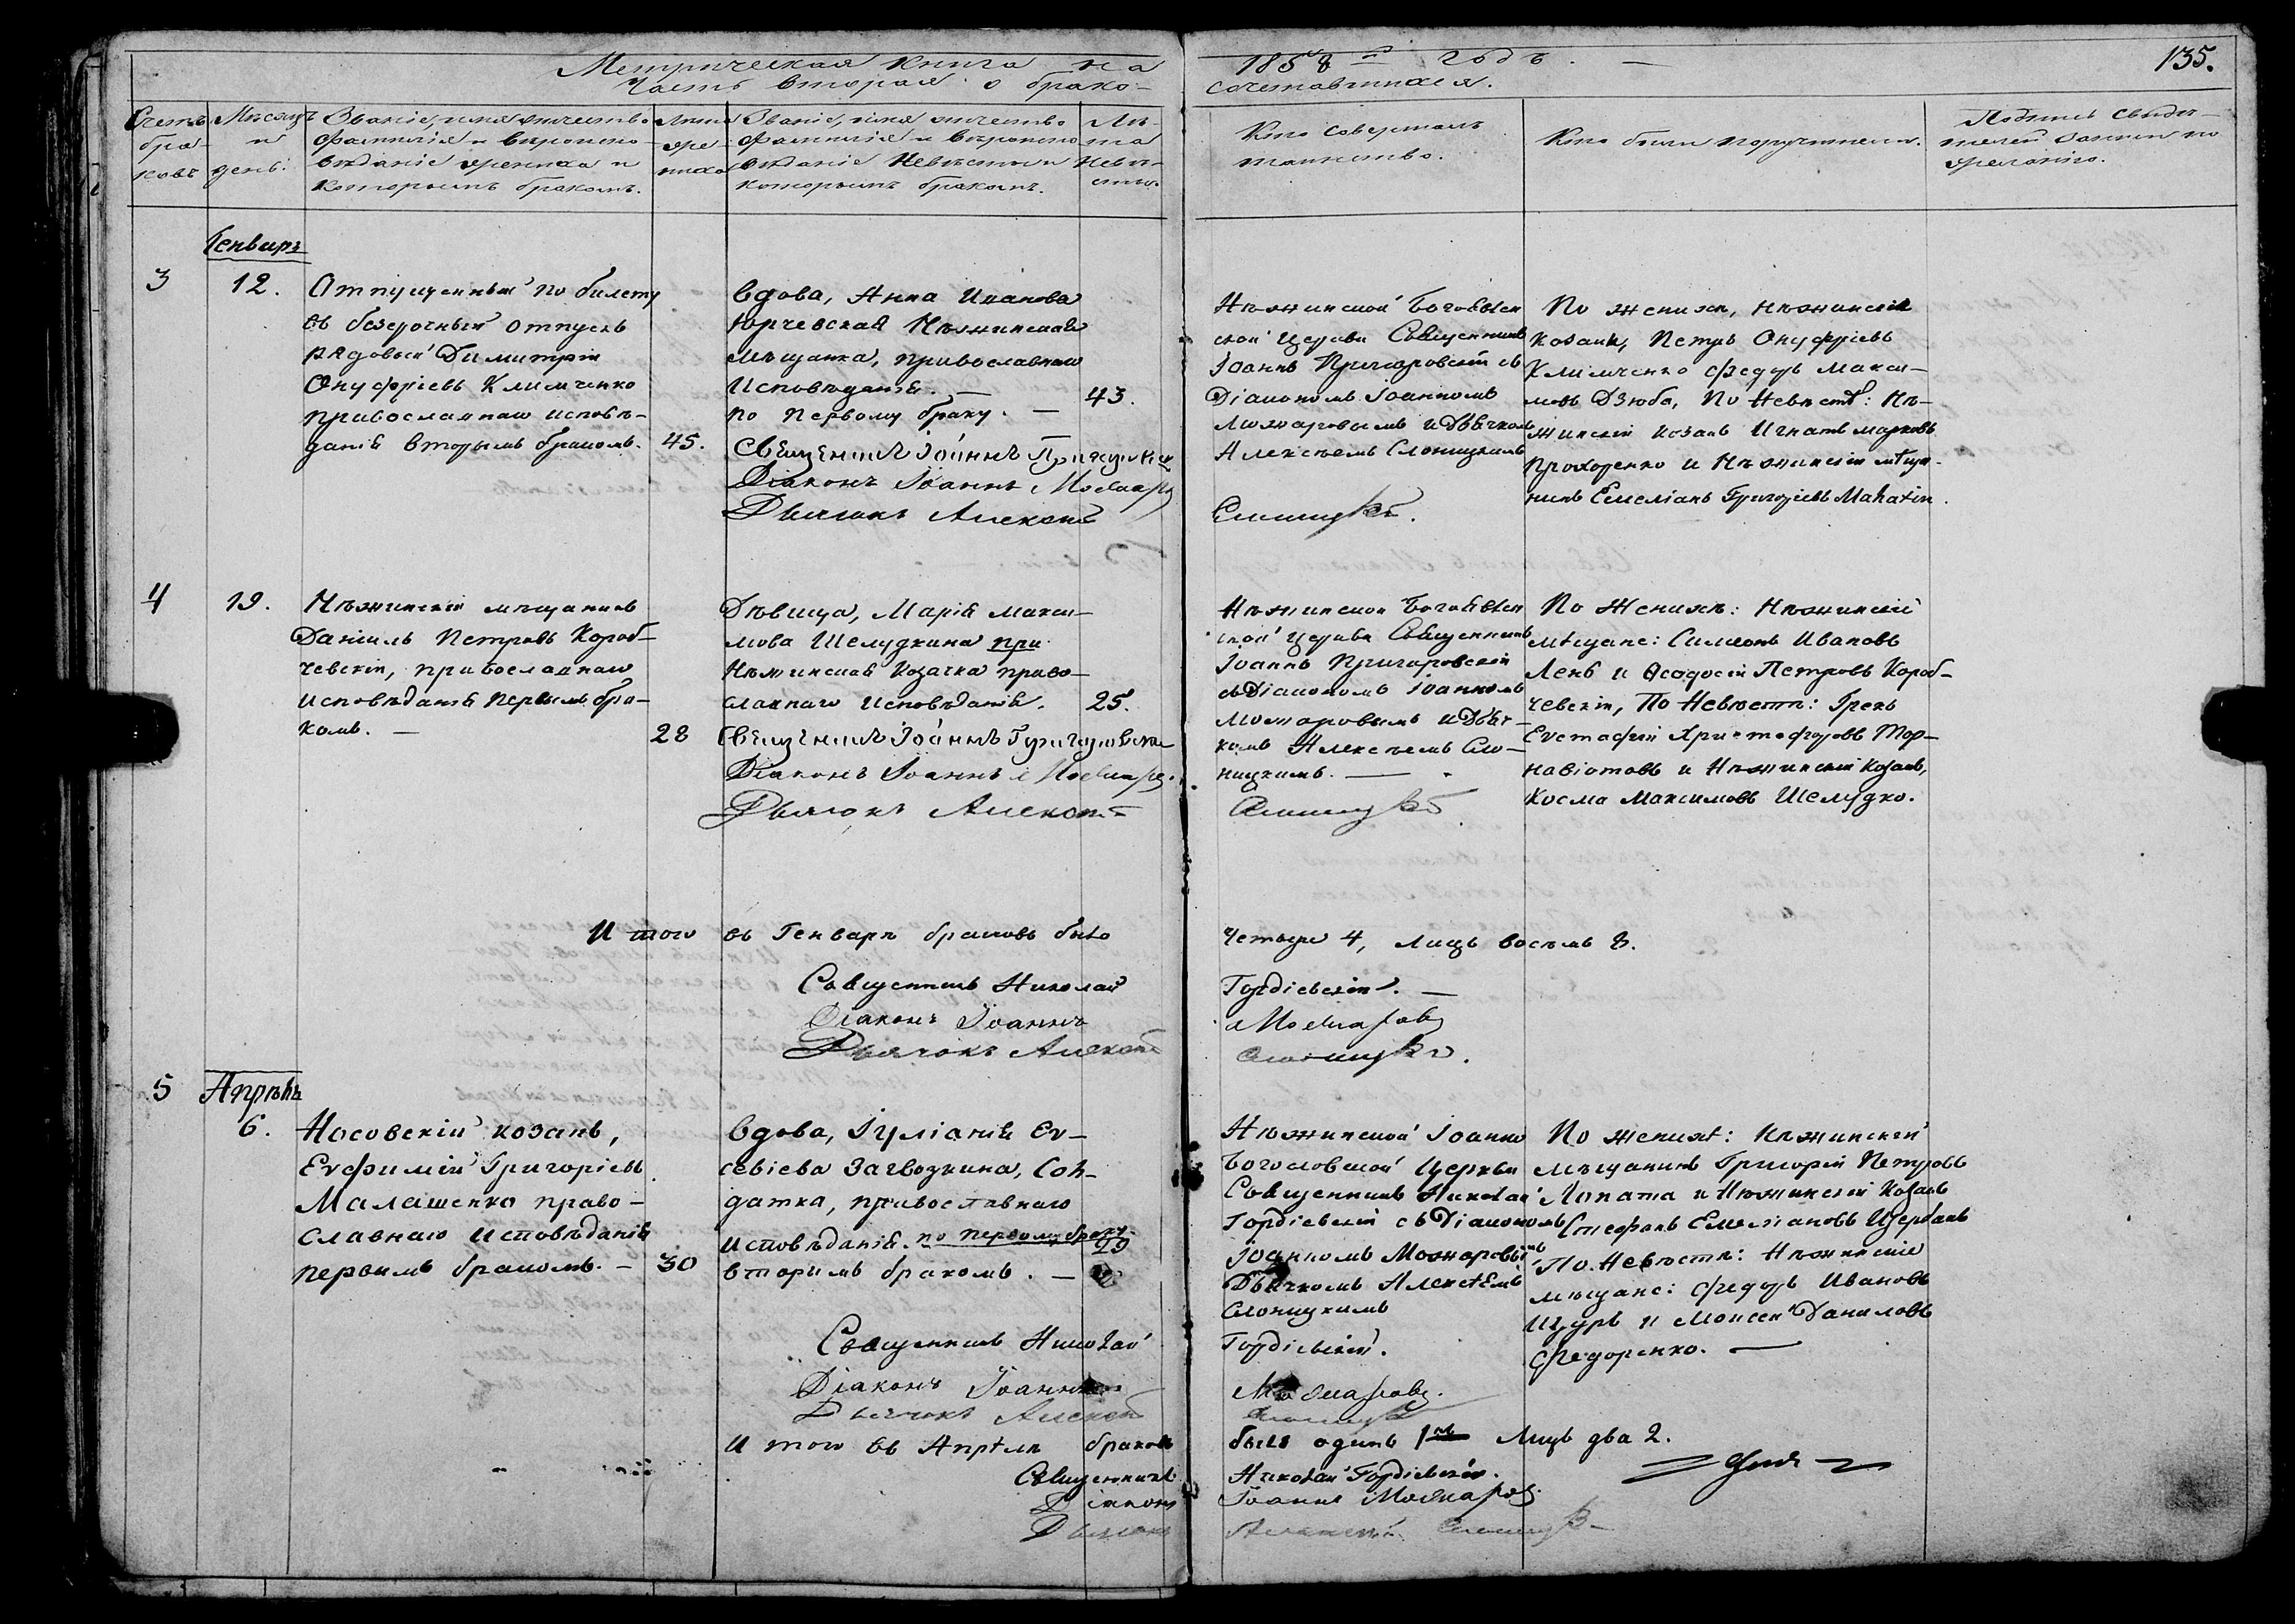 Метрическая книга на 1858 годъ.
135.
Часть вторая о брако-
сочетавшихся.
Счетъ браковъ
Мѣсяцъ и день.
Званіе, имя отчество
фамилія и вѣроиспо-
вѣданіе жениха и
которымъ бракомъ.
Лѣта жениха
Званіе, имя отчество
фамилія и вѣроиспо-
вѣданіе невѣсты и
которымъ бракомъ.
Лѣ-
та
невѣ-
сты.
Кто совершалъ
таинство.
Кто были поручители.
Подпись свидѣ-
телей записи по
желанію.
Генварь
3
12.
Отпущенный по билету
въ безсрочный отпускъ
рядовый Димитрій
Онуфріевъ Климченко
православнаго исповѣ-
данія вторымъ бракомъ.
45.
Вдова, Анна Иванова
Юрчевская Нѣжинская
мѣщанка, православнаго
исповѣданія. —
по первому браку. —
43.
Священникъ Іоаннъ
Діаконъ Іоаннъ
Дьячокъ Алексѣй
Нѣжинской Богоявлен
ской Церкви Священникъ
Іоаннъ Пригаровскій съ
Діакономъ Іоанномъ
Можаровымъ и Дьячкомъ
Алексѣемъ Слоницкимъ
Слоницкій.
По женихѣ, Нѣжинскіе
козаки, Петръ Онуфріевъ
Климченко Федоръ Макси-
мовъ Дзюба, По Невѣстѣ: Нѣ-
жинскій козакъ Игнатъ Марковъ
Прохоренко и Нѣжинскій мѣща-
нинъ Емеліанъ Григоріевъ
4
19.
Нѣжинскій мѣщанинъ
Даніилъ Петровъ Короб-
чевскій, православнаго
исповѣданія первымъ бра-
комъ. —
28
Дѣвица, Марія Макси-
мова Шелудкина при
Нѣжинская Козачка право-
славнаго исповѣданія.
25.
Священникъ Іоаннъ Пригаровскій
Діаконъ Іоаннъ Можаровъ
Дьячокъ Алексѣй
Нѣжинской Богоявлен
ской Церкви Священникъ
Іоаннъ Пригаровскій
съ Діакономъ Іоанномъ
Можаровымъ и Дьяч-
комъ Алексѣемъ Сло-
ницкимъ. —
Слоницкій
По Женихѣ: Нѣжинскіе
мѣщане: Симеонъ Ивановъ
Лень и Ѳеодосій Петровъ Короб-
чевскій, По Невѣстѣ: Грекъ
Евстафій Христофоровъ Тор-
навіотовъ и Нѣжинскій Козакъ,
Косма Максимовъ Шелудко.
Итого въ Генварѣ браковъ было
четыре 4, лицъ восемь 8.
Священникъ Николай
Гордіевскій. —
Діаконъ Іоаннъ
Можаровъ
Дьячокъ Алексѣй
Слоницкій.
5
Апрѣль
6.
Носовскій козакъ,
Евфимій Григоріевъ
Малашенко право-
славнаго исповѣданія
первымъ бракомъ. —
30
Вдова, Іуліанія Ев-
севіева Загвоздкина, Сол-
датка, православнаго
исповѣданія. по первому браку
вторымъ бракомъ. —
29
Священникъ Николай
Діаконъ Іоаннъ
Дьячокъ Алексѣй
Нѣжинской Іоанно
Богословской Церкви
Священникъ Николай
Гордіевскій съ Діакономъ
Іоанномъ Можаровымъ
Дьячкомъ Алексѣемъ
Слоницкимъ
Гордіевскій.
Можаровъ.
Слоницкій
По женихѣ: Нѣжинскій
мѣщанинъ Григорій Петровъ
Лопата и Нѣжинскій Козакъ
Стефанъ Емельяновъ Щербакъ
По Невѣстѣ: Нѣжинскіе
мѣщане: Федоръ Ивановъ
Щуръ и Моисей Даниловъ
Федоренко. —
Итого въ Апрѣлѣ браковъ
былъ одинъ 1 Лицъ два 2.
Священникъ
Николай Гордіевскій.
Діаконъ
Іоаннъ Можаровъ
Дьячокъ
Алексѣй Слоницкій